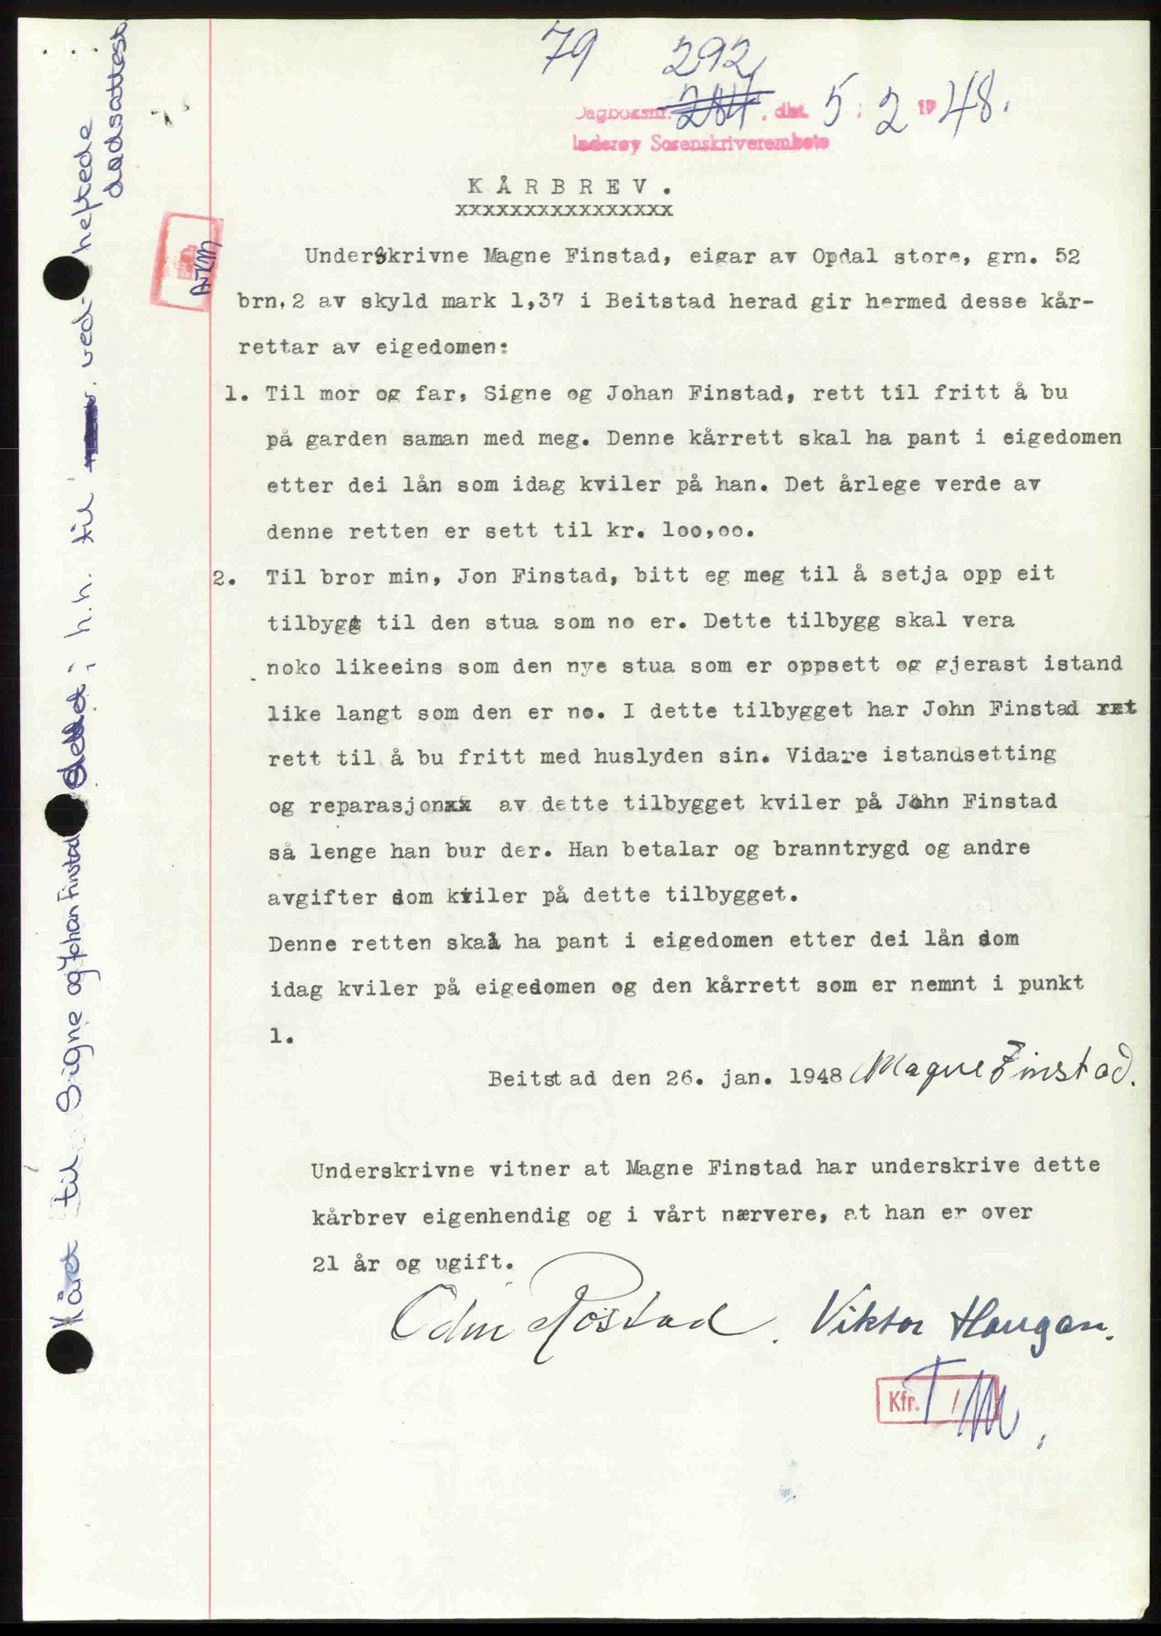 79 292
Dagboksnr. 284, den 5 / 2 1948.
Inderøy Sorenskriverembete
KÅRBREV.
xxxxxxxxxxxxxxxx
Underskrivne Magne Finstad, eigar av Opdal store, grn. 52
brn, 2 av skyld mark 1,37 i Beitstad herad gir hermed desse kår-
rettar av eigedomen:
1. Til mor og far, Signe og Johan Finstad, rett til fritt å bu
på garden saman med meg. Denne kårrett skal ha pant i eigedomen
etter dei lån som idag kviler på han. Det årlege verde av
denne retten er sett til kr. 100,00.
2. Til bror min, Jon Finstad, bitt eg meg til å setja opp eit
tilbygg til den stua som no er. Dette tilbygg skal vera
noko likeeins som den nye stua som er oppsett og gjerast istand
like langt som den er no. I dette tilbygget har John Finstad rxt
rett til å bu fritt med huslyden sin. Vidare istandsetting
og reparasjonxx av dette tilbygget kviler på John Finstad
så lenge han bur der. Han betalar og branntrygd og andre
avgifter som kviler på dette tilbygget.
Denne retten skal ha pant i eigedomen etter dei lån som
idag kviler på eigedomen og den kårrett som er nemnt i punkt
1.
Beitstad den 26. jan. 1948 Magne Finstad.
Underskrivne vitner at Magne Finstad har underskrive dette
kårbrev eigenhendig og i vårt nærvere, at han er over
21 år og ugift.
Odin Røstad. Viktor Haugan.
Kfr.
Kåret til Signe og Johan Finstad slettet; h.h. til ved-heftede
dødsattest